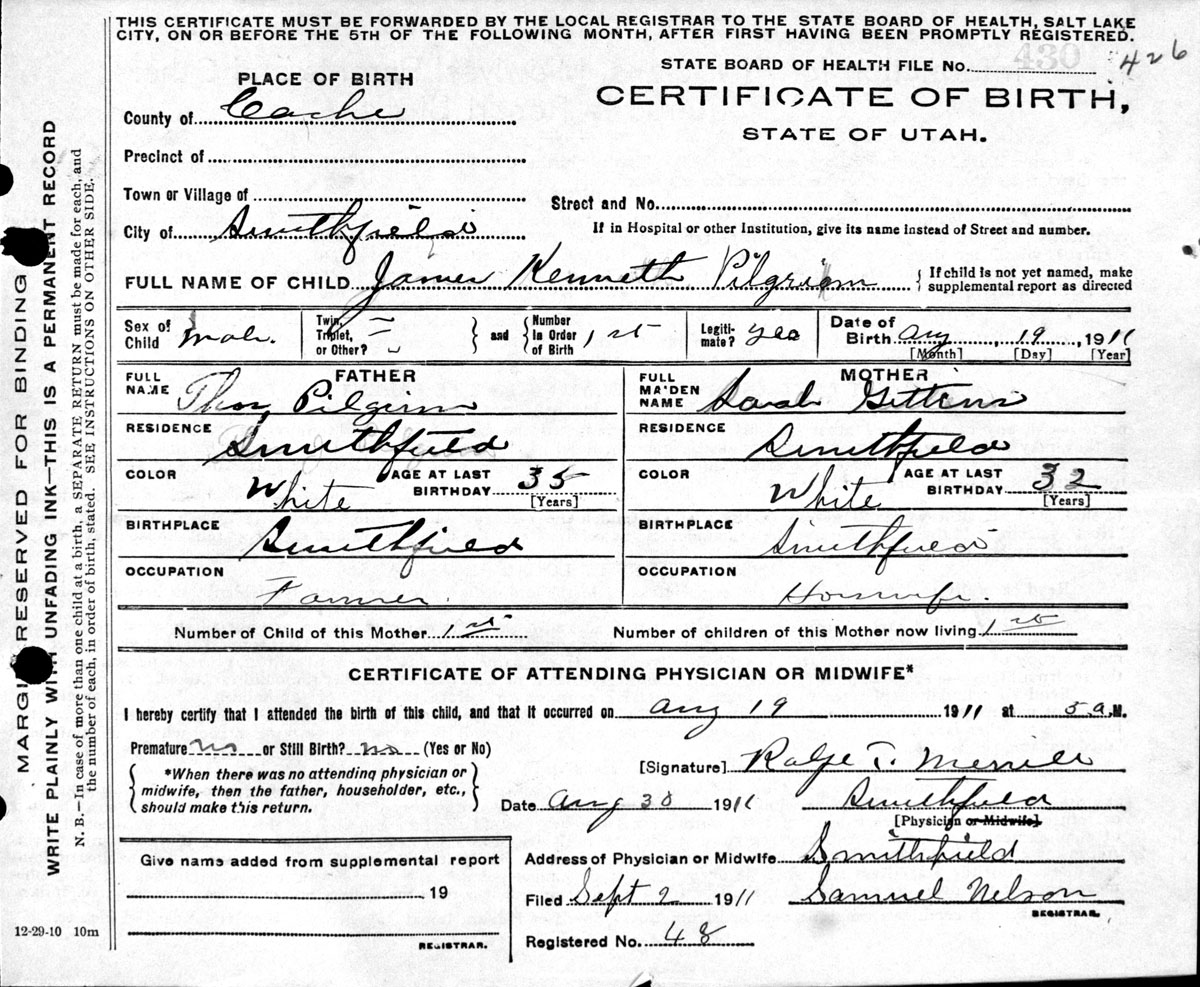 THIS CERTIFICATE MUST BE FORWARDED BY THE LOCAL REGISTRAR TO THE STATE BOARD OF HEALTH, SALT LAKE
CITY, ON OR BEFORE THE 5TH OF THE FOLLOWING MONTH, AFTER FIRST HAVING BEEN PROMPTLY REGISTERED.
430
426
STATE BOARD OF HEALTH FILE No.
CERTIFICATE OF BIRTH,
STATE OF UTAH.
PLACE OF BIRTH
County of Cache
Precinct of
Town or Village of
Street and No.
City of Smithfield
If in Hospital or other Institution, give its name instead of Street and number.
FULL NAME OF CHILD James Kenneth Pilgrim
{ If child is not yet named, make
supplemental report as directed
Sex of Child Male. Twin, Triplet, or Other? } and { Number In Order of Birth 1st Legiti-mate? yes Date of Birth Aug 19, 1911
[Month] [Day] [Year]
FATHER MOTHER
FULL NAME Thos, Pilgrim FULL MAIDEN NAME Sarah Gittins
RESIDENCE Smithfield RESIDENCE Smithfield
COLOR White AGE AT LAST BIRTHDAY 35 [Years] COLOR White AGE AT LAST BIRTHDAY 32 [Years]
BIRTHPLACE Smithfield BIRTHPLACE Smithfield
OCCUPATION Farmer. OCCUPATION Housewife
Number of Child of this Mother 1st Number of children of this Mother now living 1st
CERTIFICATE OF ATTENDING PHYSICIAN OR MIDWIFE*
I hereby certify that I attended the birth of this child, and that it occurred on Aug 19 1911 at 5 a.M.
Premature no or Still Birth? no (Yes or No)
*When there was no attending physician or
midwife, then the father, householder, etc.,
should make this return.
[Signature] T. Merrill
Date Aug 30 1911 Smithfield
[Physician or Midwife]
Address of Physician or Midwife Smithfield
Filed Sept 2 1911 Samuel Nelson
REGISTRAR.
Registered No. 48
Give name added from supplemental report
, 19
REGISTRAR.
12-29-10 10m
MARGIN RESERVED FOR BINDING
WRITE PLAINLY WITH UNFADING INK—THIS IS A PERMANENT RECORD
N. B.—In case of more than one child at a birth, a SEPARATE RETURN must be made for each, and
the number of each, in order of birth, stated. SEE INSTRUCTIONS ON OTHER SIDE.